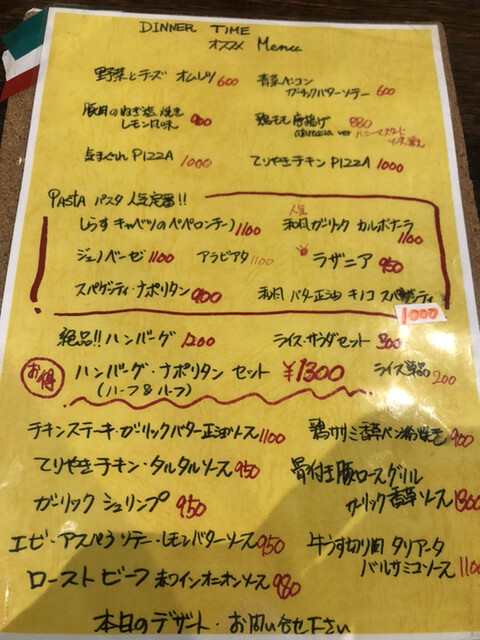 DINNER TIME
オススメ Menu
野菜とチーズ オムレツ 600
青菜ベーコン
ガーリックバターソテー 600
豚肉のねぎ塩焼き
レモン風味 900
鶏もも唐揚げ 880
ハニーマスタード
気まぐれ PIZZA 1000
てりやきチキン PIZZA 1000
PASTA パスタ 人気定番!!
しらす キャベツのペペロンチーノ 1100
人気
和風ガーリック カルボナーラ
1100
ジェノベーゼ 1100
アラビアタ 1100
ラザニア 950
スパゲッティ・ナポリタン 900
和風 バター正油 キノコ スパゲッティ
1000
絶品!! ハンバーグ 1200
ライス・サラダセット 300
お得
ハンバーグ・ナポリタン セット ¥1300
(ハーフ&ハーフ)
ライス単品 200
チキンステーキ・ガーリックバター正油ソース 1100
鶏ササミ香草パン粉焼き 900
てりやきチキン・タルタルソース 950
骨付き豚ロースグリル
ガーリック香草ソース 1300
ガーリック シュリンプ 950
エビ・アスパラ ソテー・レモンバターソース 950
牛うす切り肉 タリアータ
バルサミコソース 1100
ローストビーフ 赤ワインオニオンソース 980
本日のデザート・お問い合せ下さい